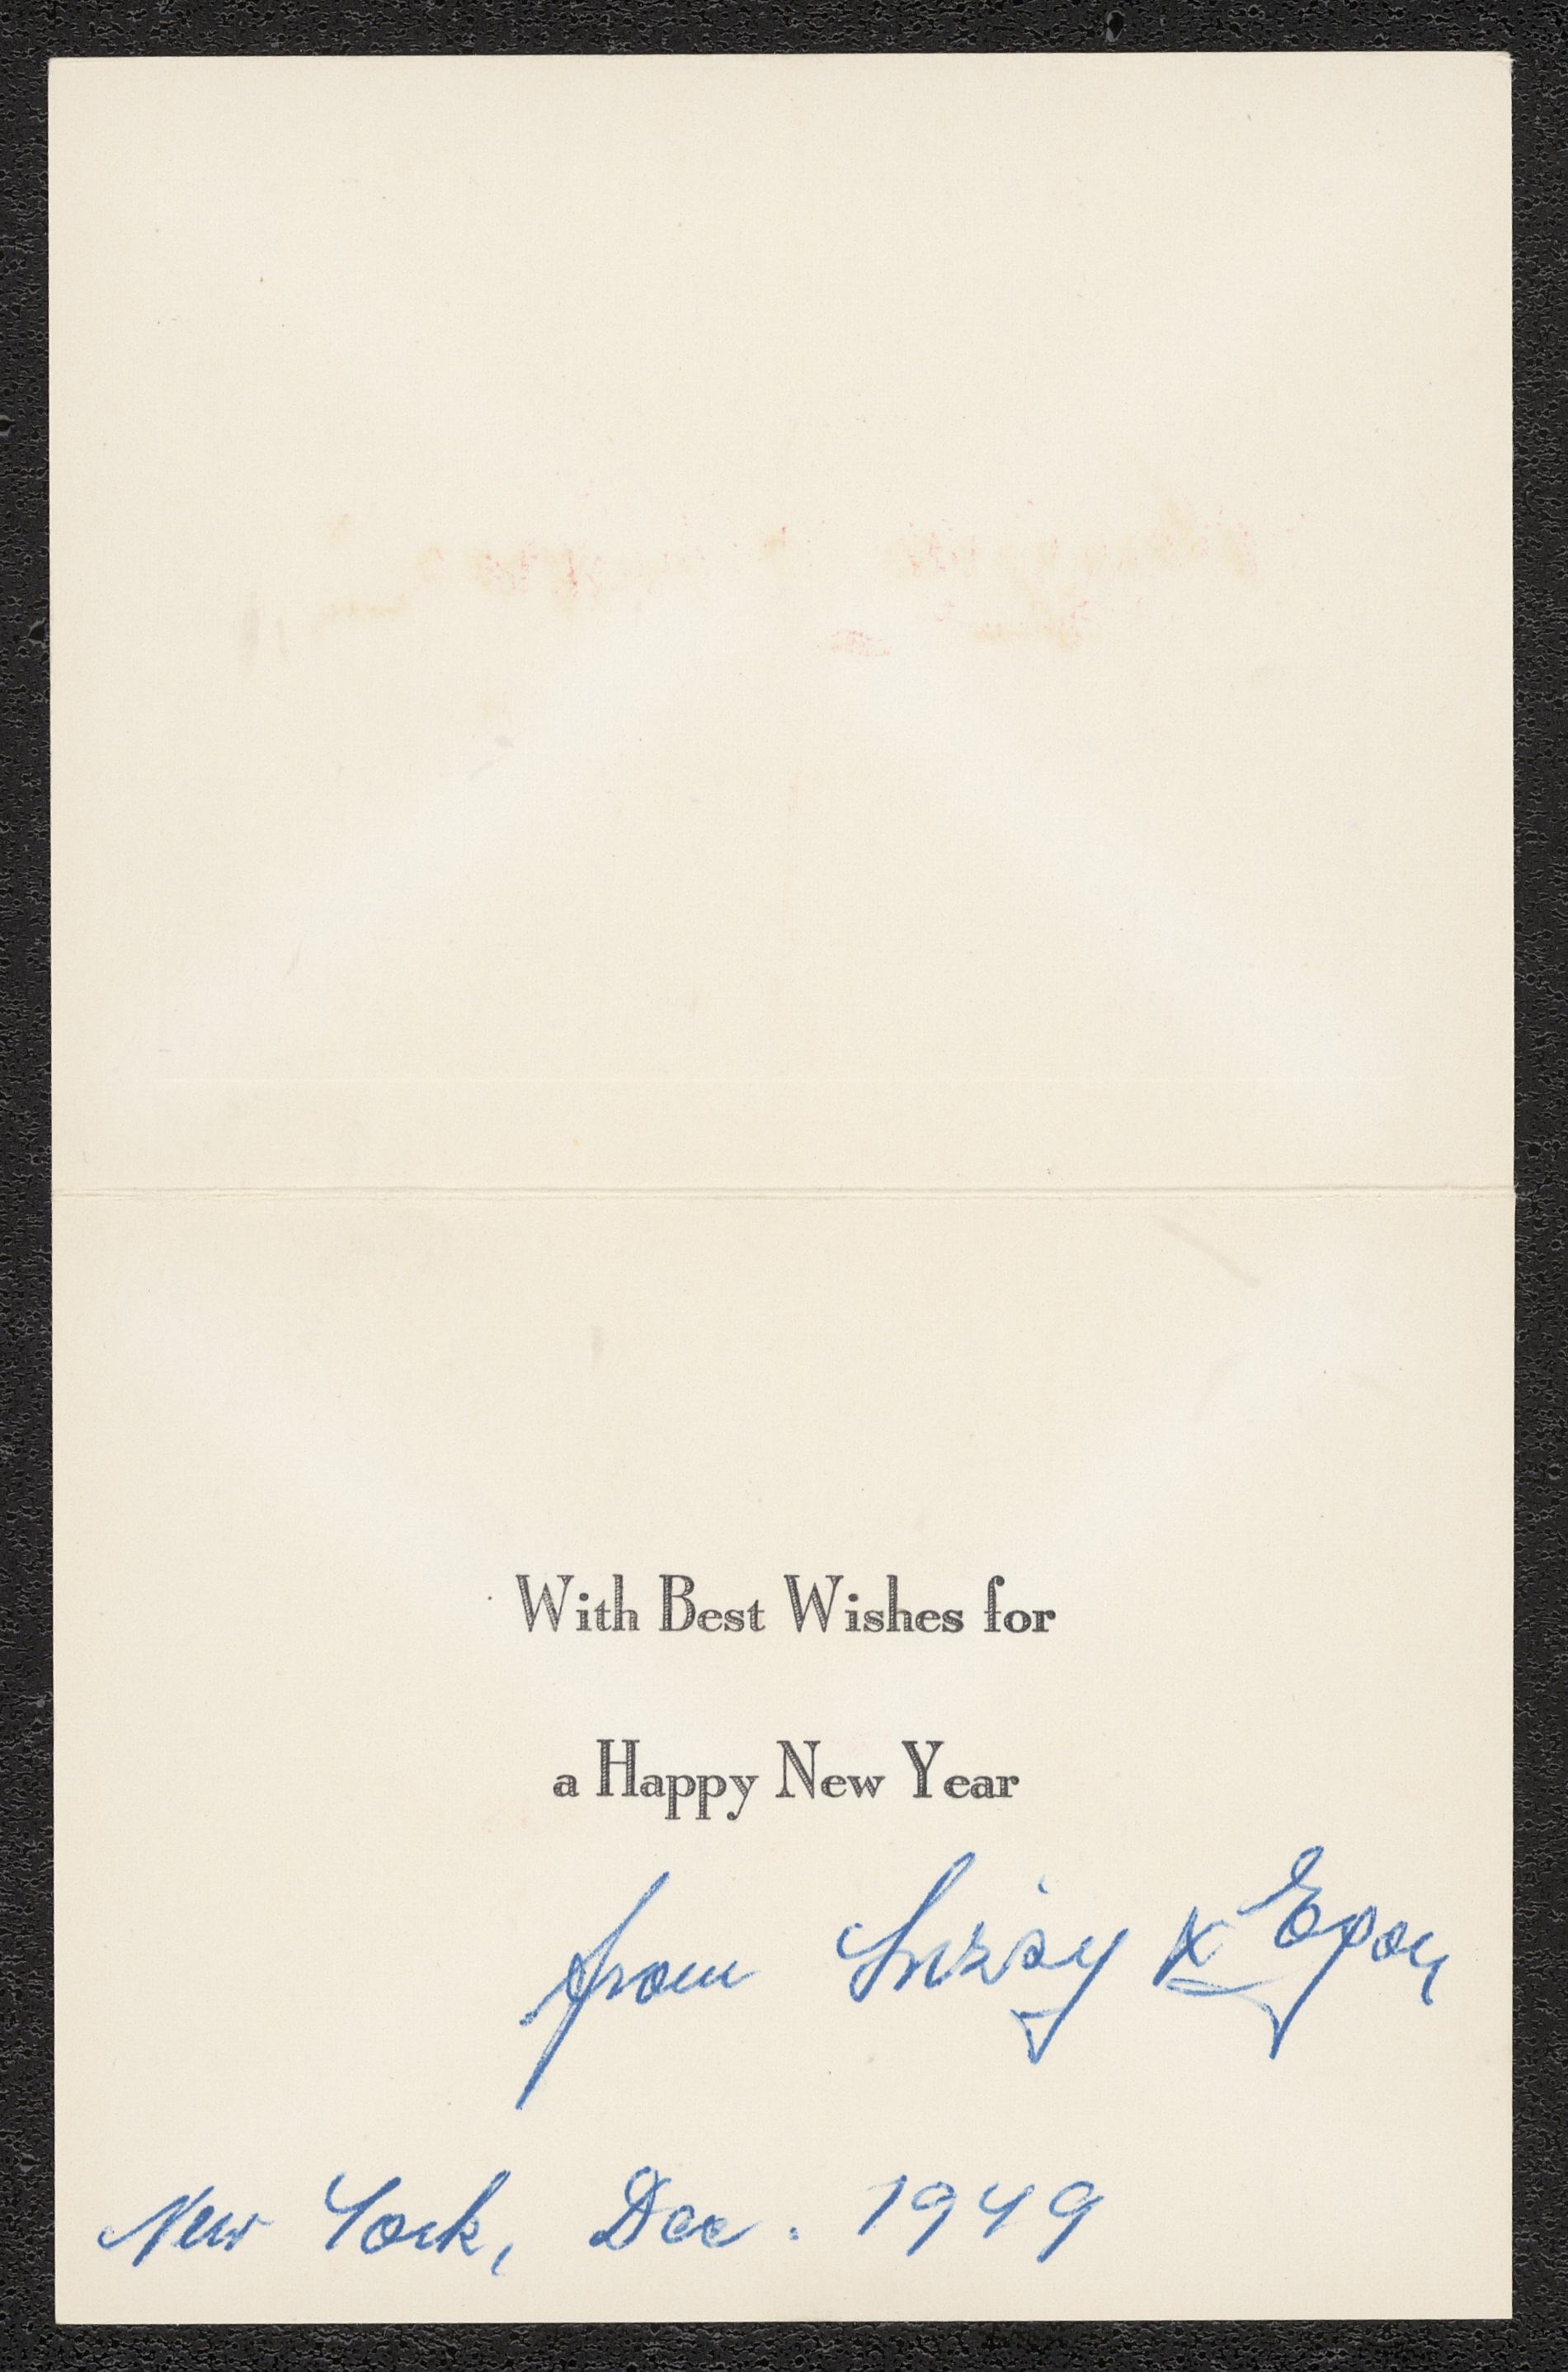 With Best Wishes for
a Happy New Year
from
New York, Dec. 1949